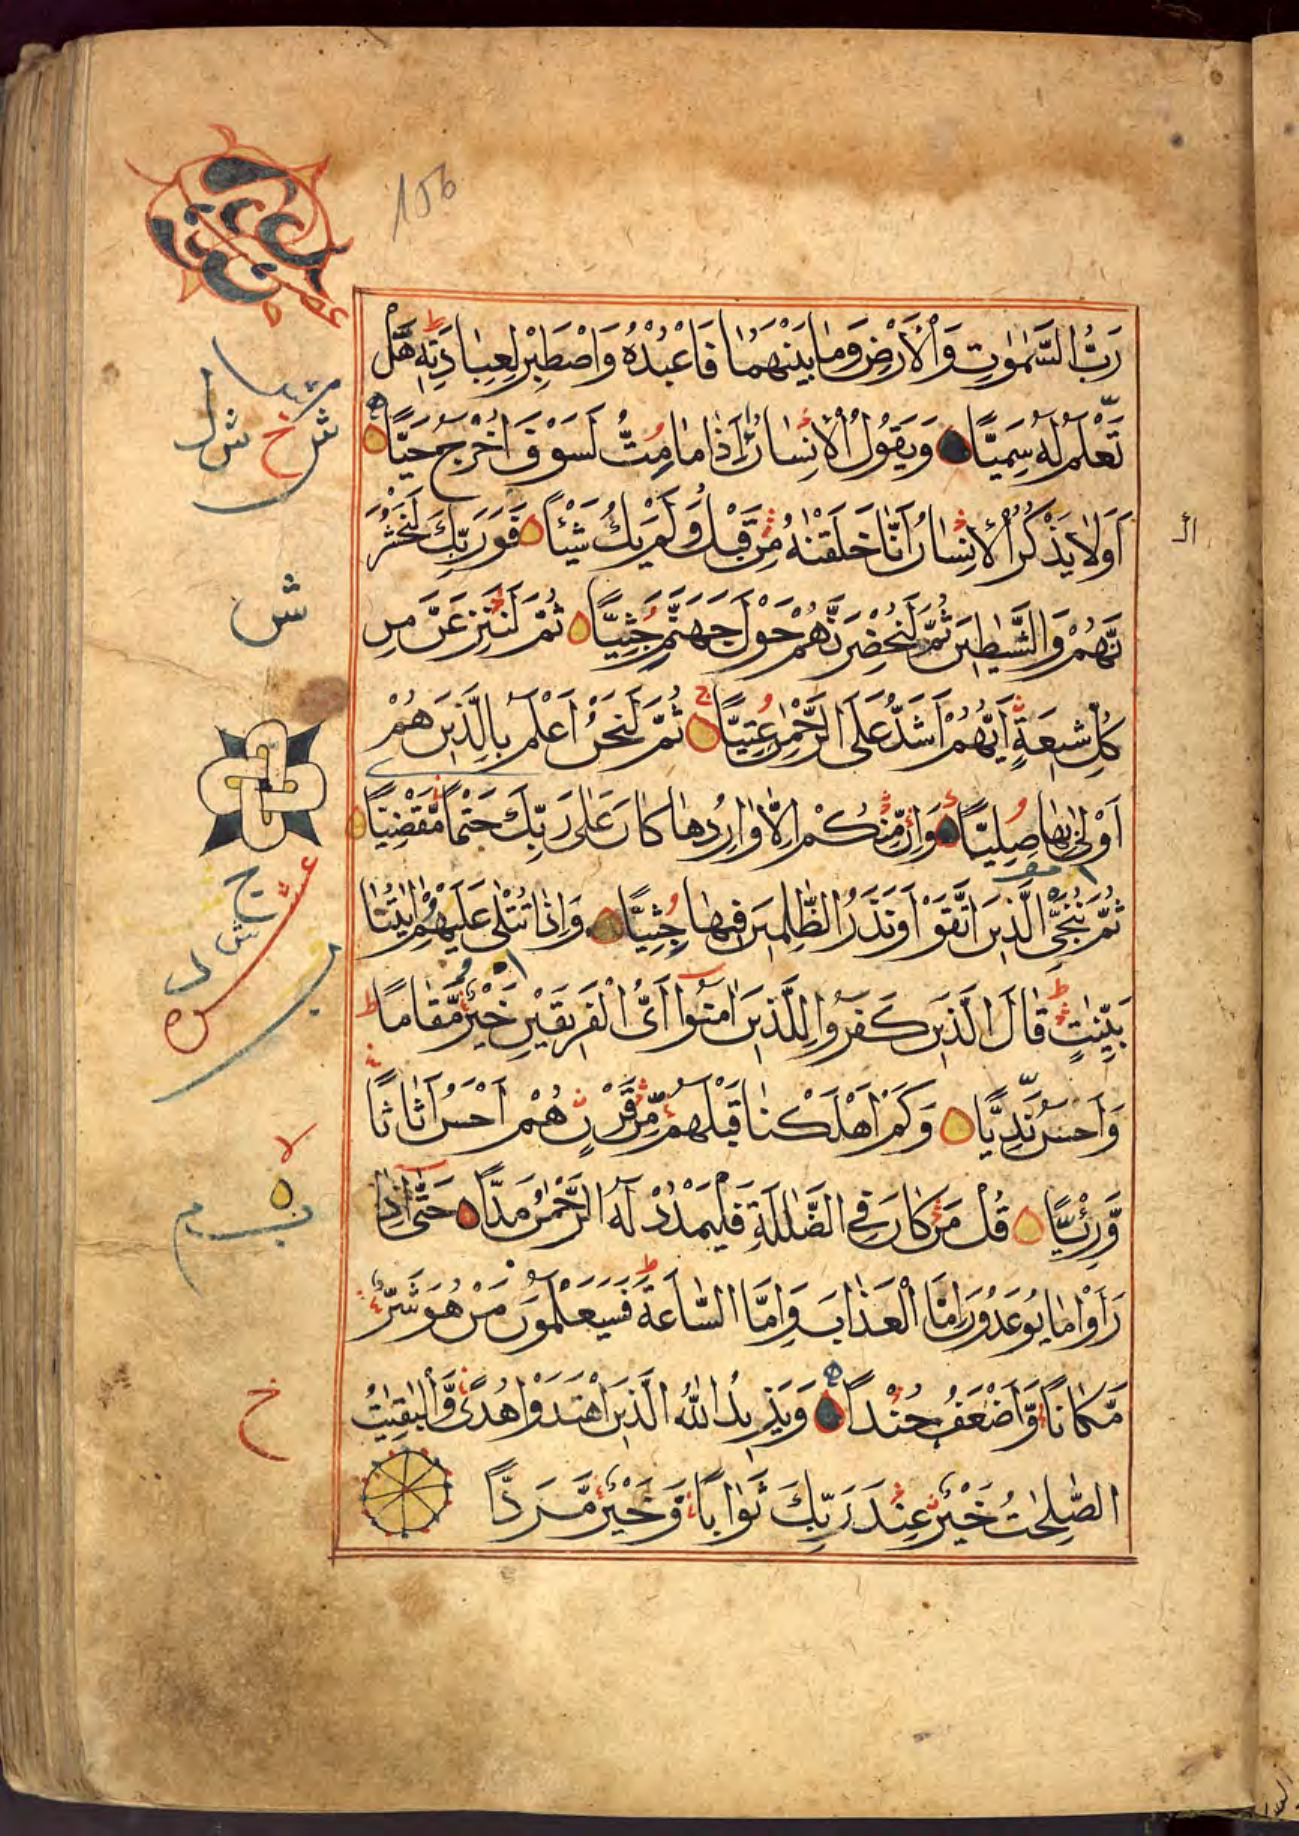 156
رَبُّ السَّمٰوٰتِ وَالْاَرْضِ وَمَا بَيْنَهُمَا فَاعْبُدْهُ وَاصْطَبِرْ لِعِبَادَتِهِ هَلْ
تَعْلَمُ لَهُ سَمِيًّا وَيَقُولُ الْاِنْسَانُ ءَاِذَا مَا مِتُّ لَسَوْفَ اُخْرَجُ حَيًّا
اَوَلَا يَذْكُرُ الْاِنْسَانُ اَنَّا خَلَقْنٰهُ مِنْ قَبْلُ وَلَمْ يَكُ شَيْئًا فَوَرَبِّكَ لَنَحْشُرَ
نَّهُمْ وَالشَّيٰطِينَ ثُمَّ لَنُحْضِرَنَّهُمْ حَوْلَ جَهَنَّمَ جِثِيًّا ثُمَّ لَنَنْزِعَنَّ مِن
كُلِّ شِيعَةٍ اَيُّهُمْ اَشَدُّ عَلَى الرَّحْمٰنِ عِتِيًّا ثُمَّ لَنَحْنُ اَعْلَمُ بِالَّذِينَ هُمْ
اَوْلٰى بِهَا صِلِيًّا وَاِنْ مِّنْكُمْ اِلَّا وَارِدُهَا كَانَ عَلٰى رَبِّكَ حَتْمًا مَّقْضِيًّا
ثُمَّ نُنَجِّي الَّذِينَ اتَّقَوْا وَنَذَرُ الظّٰلِمِينَ فِيهَا جِثِيًّا وَاِذَا تُتْلٰى عَلَيْهِمْ اٰيٰتُنَا
بَيِّنٰتٍ قَالَ الَّذِينَ كَفَرُوا لِلَّذِينَ اٰمَنُوا اَيُّ الْفَرِيقَيْنِ خَيْرٌ مَّقَامًا
وَاَحْسَنُ نَدِيًّا وَكَمْ اَهْلَكْنَا قَبْلَهُمْ مِّنْ قَرْنٍ هُمْ اَحْسَنُ اَثَاثًا
وَّرِئْيًا قُلْ مَنْ كَانَ فِي الضَّلٰلَةِ فَلْيَمْدُدْ لَهُ الرَّحْمٰنُ مَدًّا حَتّٰى اِذَا
رَاَوْا مَا يُوعَدُونَ اِمَّا الْعَذَابَ وَاِمَّا السَّاعَةَ فَسَيَعْلَمُونَ مَنْ هُوَ شَرٌّ
مَّكَانًا وَّاَضْعَفُ جُنْدًا وَيَزِيدُ اللّٰهُ الَّذِينَ اهْتَدَوْا هُدًى وَّالْبٰقِيٰتُ
الصّٰلِحٰتُ خَيْرٌ عِنْدَ رَبِّكَ ثَوَابًا وَّخَيْرٌ مَّرَدًّا